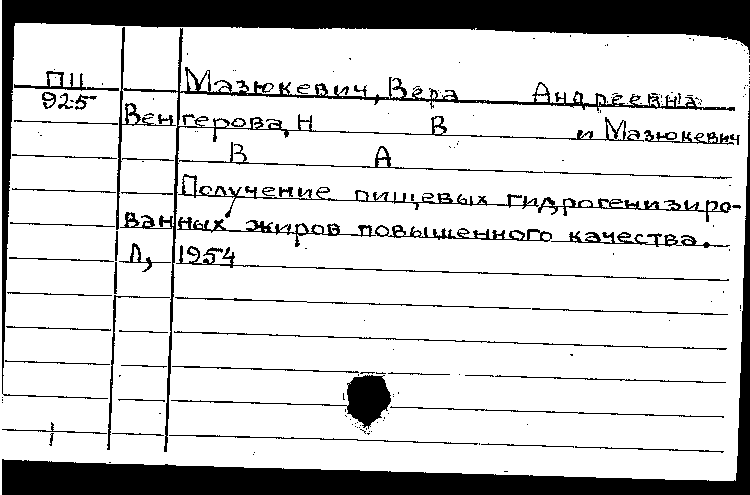 П11 Мазюкевич, Вера Андреевна
925
Венгерова, Н В и Мазюкевич
В А
Получение пищевых гидрогенизиро-
ванных жиров повышенного качества.
Л, 1954